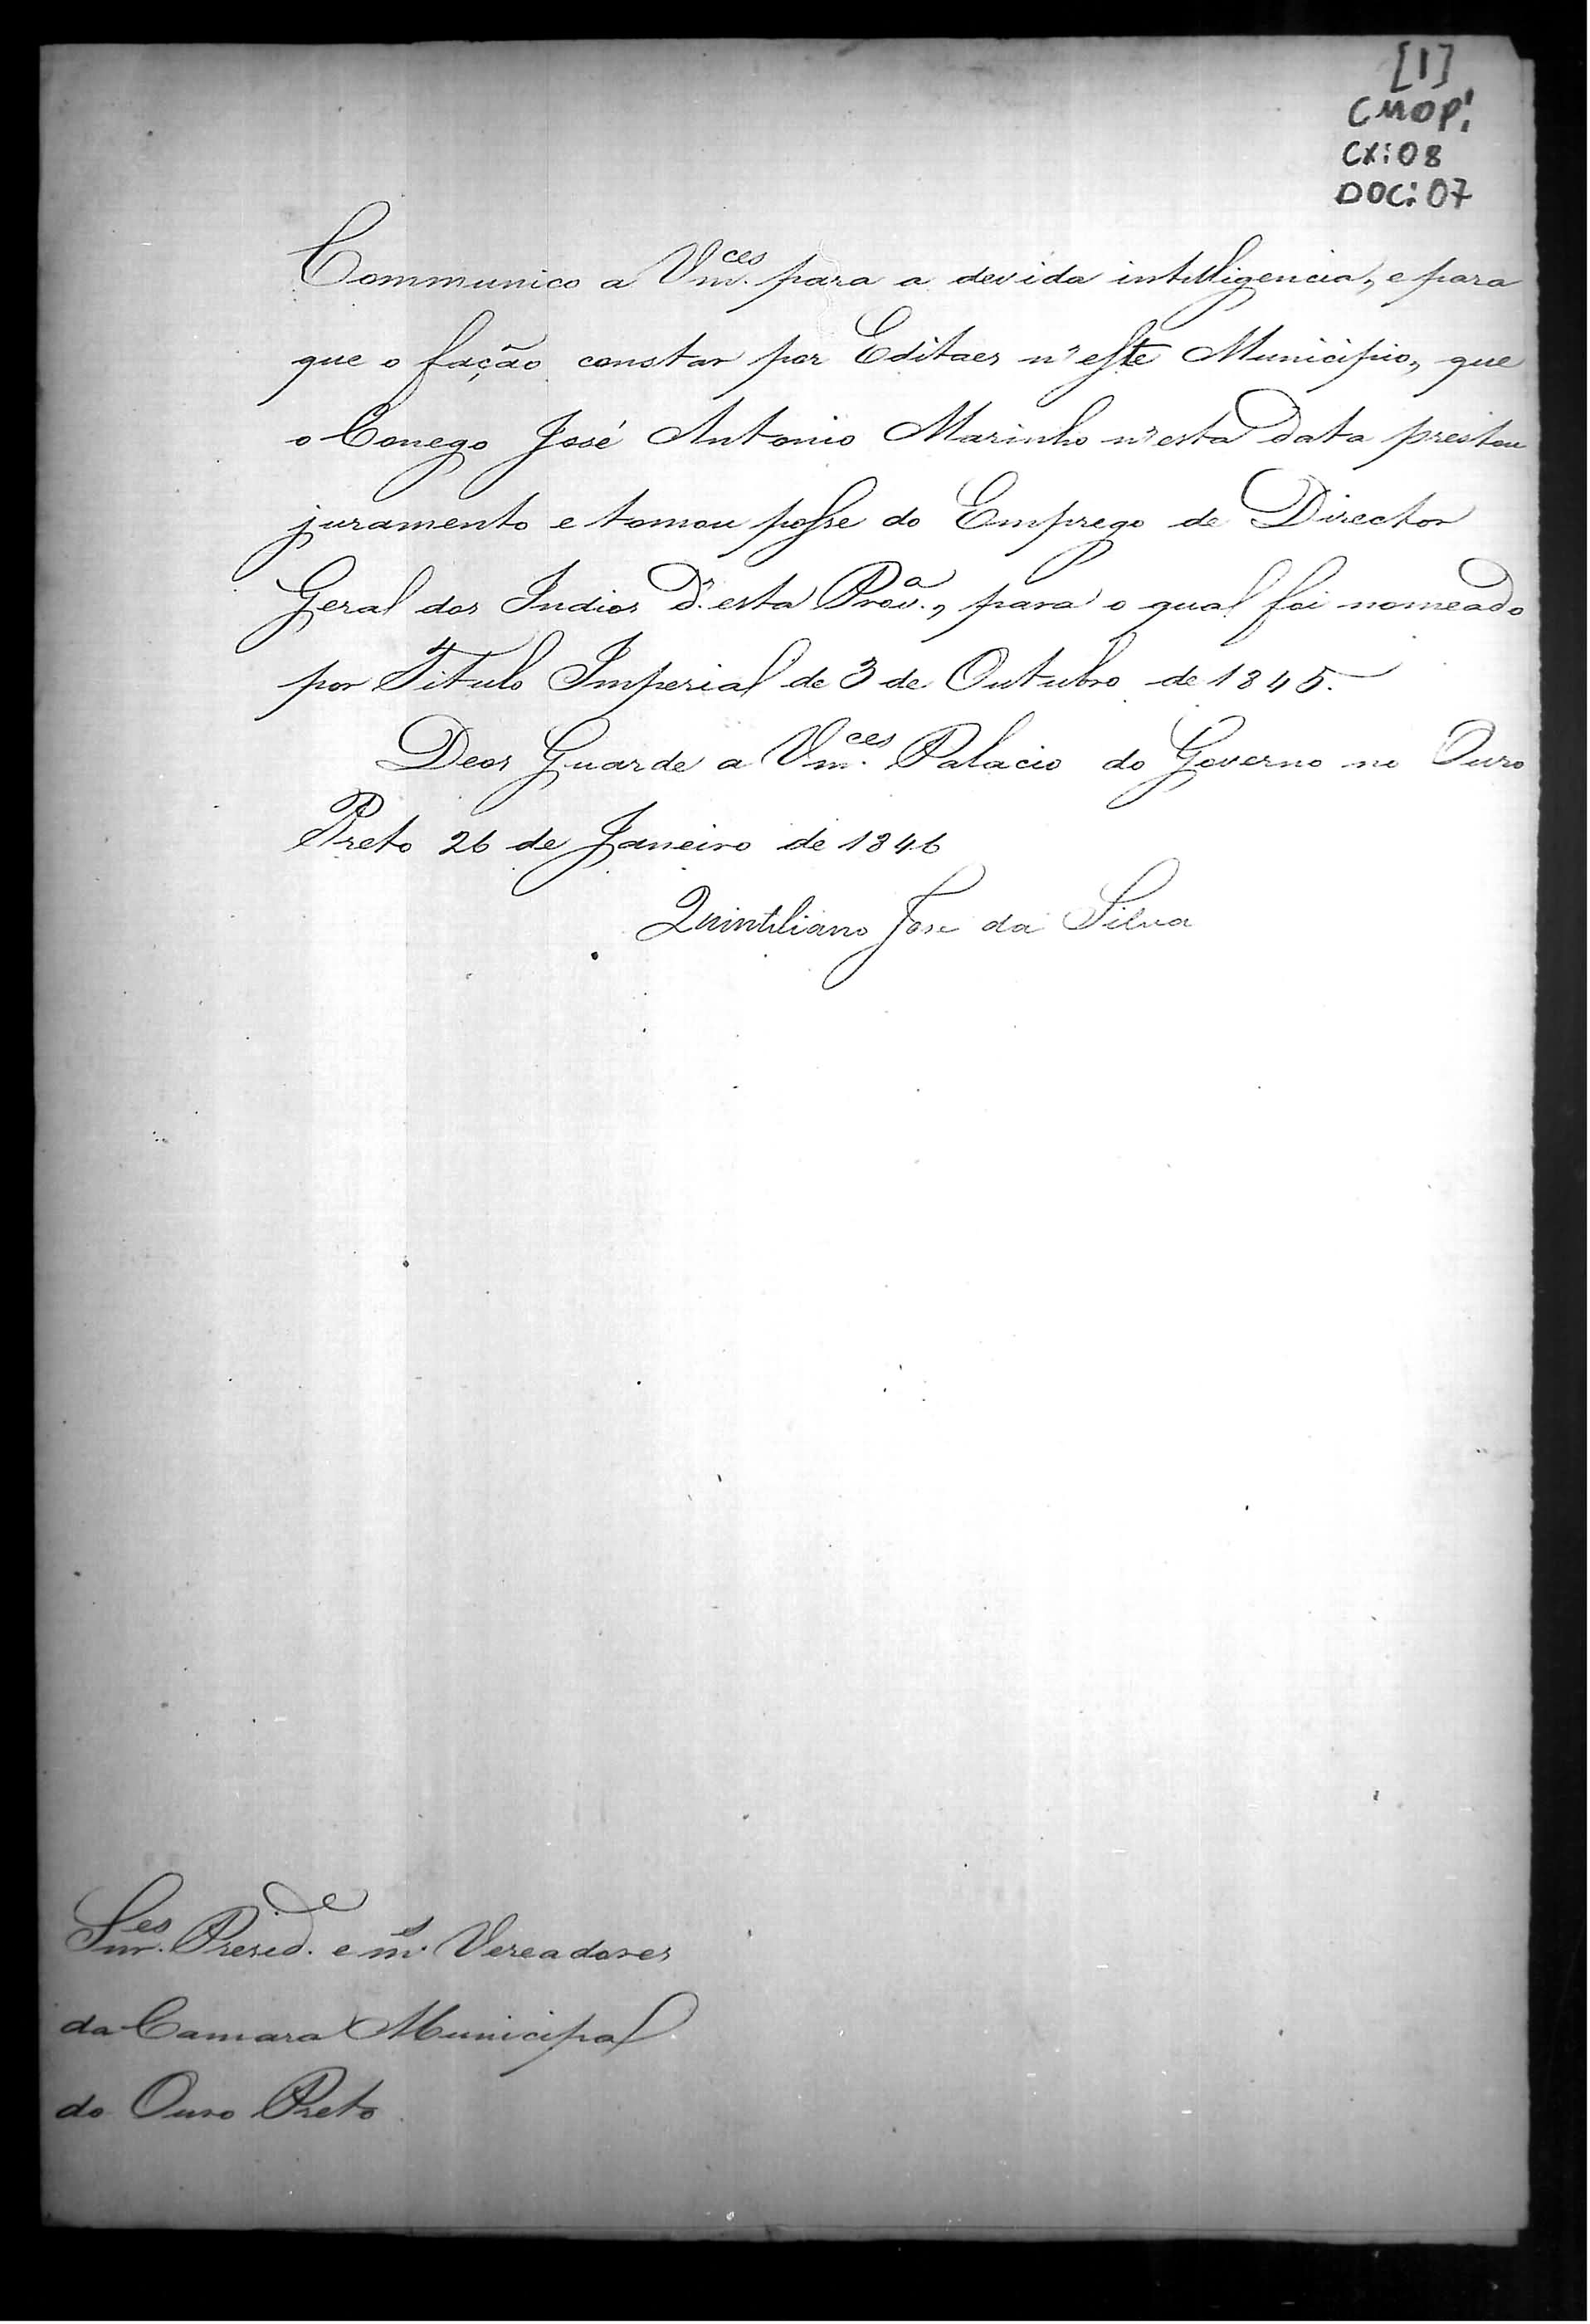 [1]
CMOP!
CX:08
DOC:07
Communico a Vm.ces para a devida intelligencia, e para
que o fação constar por Editaes n'este Municipio, que
o Conego José Antonio Marinho n'esta data prestou
juramento e tomou posse do Emprego de Director
Geral dos Indios d'esta Prov.a, para o qual foi nomeado
por Titulo Imperial de 3 de Outubro de 1845.
Deos Guarde a Vm.ces Palacio do Governo no Ouro
Preto 26 de Janeiro de 1846
Quintiliano José da Silva
Snr.es Presid.e e m.s Vereadores
da Camara Municipal
do Ouro Preto